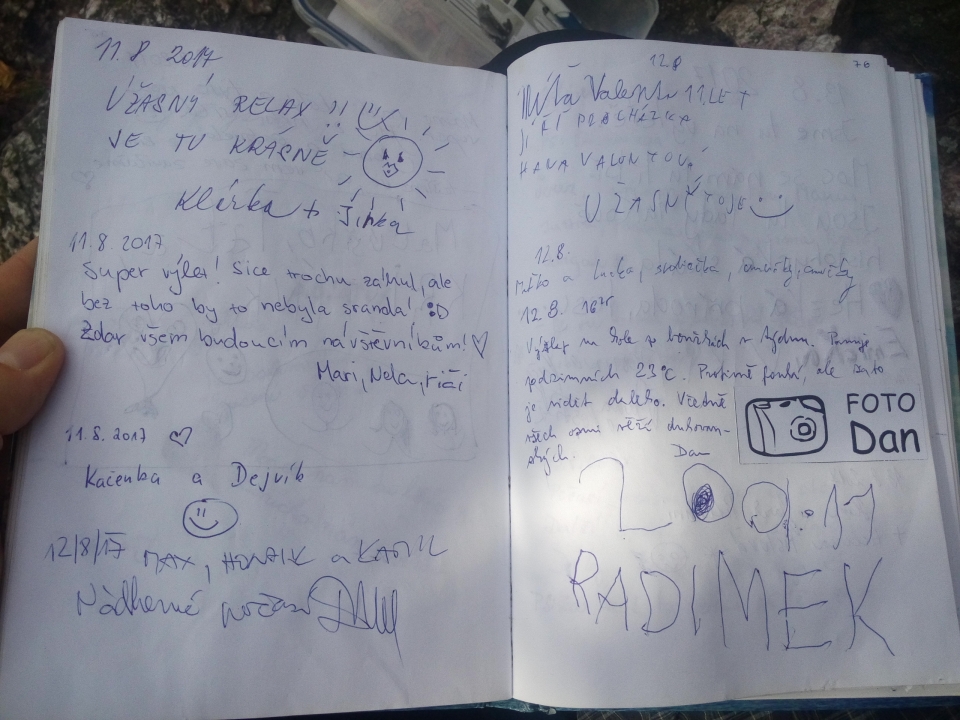 11.8 2017
ÚŽASNÝ RELAX !!
JE TU KRÁSNĚ
Klárka + Jiřka
11.8.2017
Super výlet! Sice trochu zahul, ale
bez toho by to nebyla sranda! :D
Zdar všem budoucím návštěvníkům!
Mari, Nela,
11.8.2017
Kačenba a Dejvíb
12/8/17 MAX, HONZÍK a KAMIL
Nádherné počasí
12.8
76
Valent 11 LET
JIŘÍ PROCHÁZKA
HANA VALENTOVÁ
ÚŽASNÝ TO JE
12.8.
a Lucka,
12.8. 16
Výšlap na kole po v týdnu. Panuje
podzimních 23°C. Protivně fouká, ale zato
je vidět daleko. Včetně
všech osmi věží dukovan-
ských.
Dan
FOTO
Dan
20:11
RADIMEK